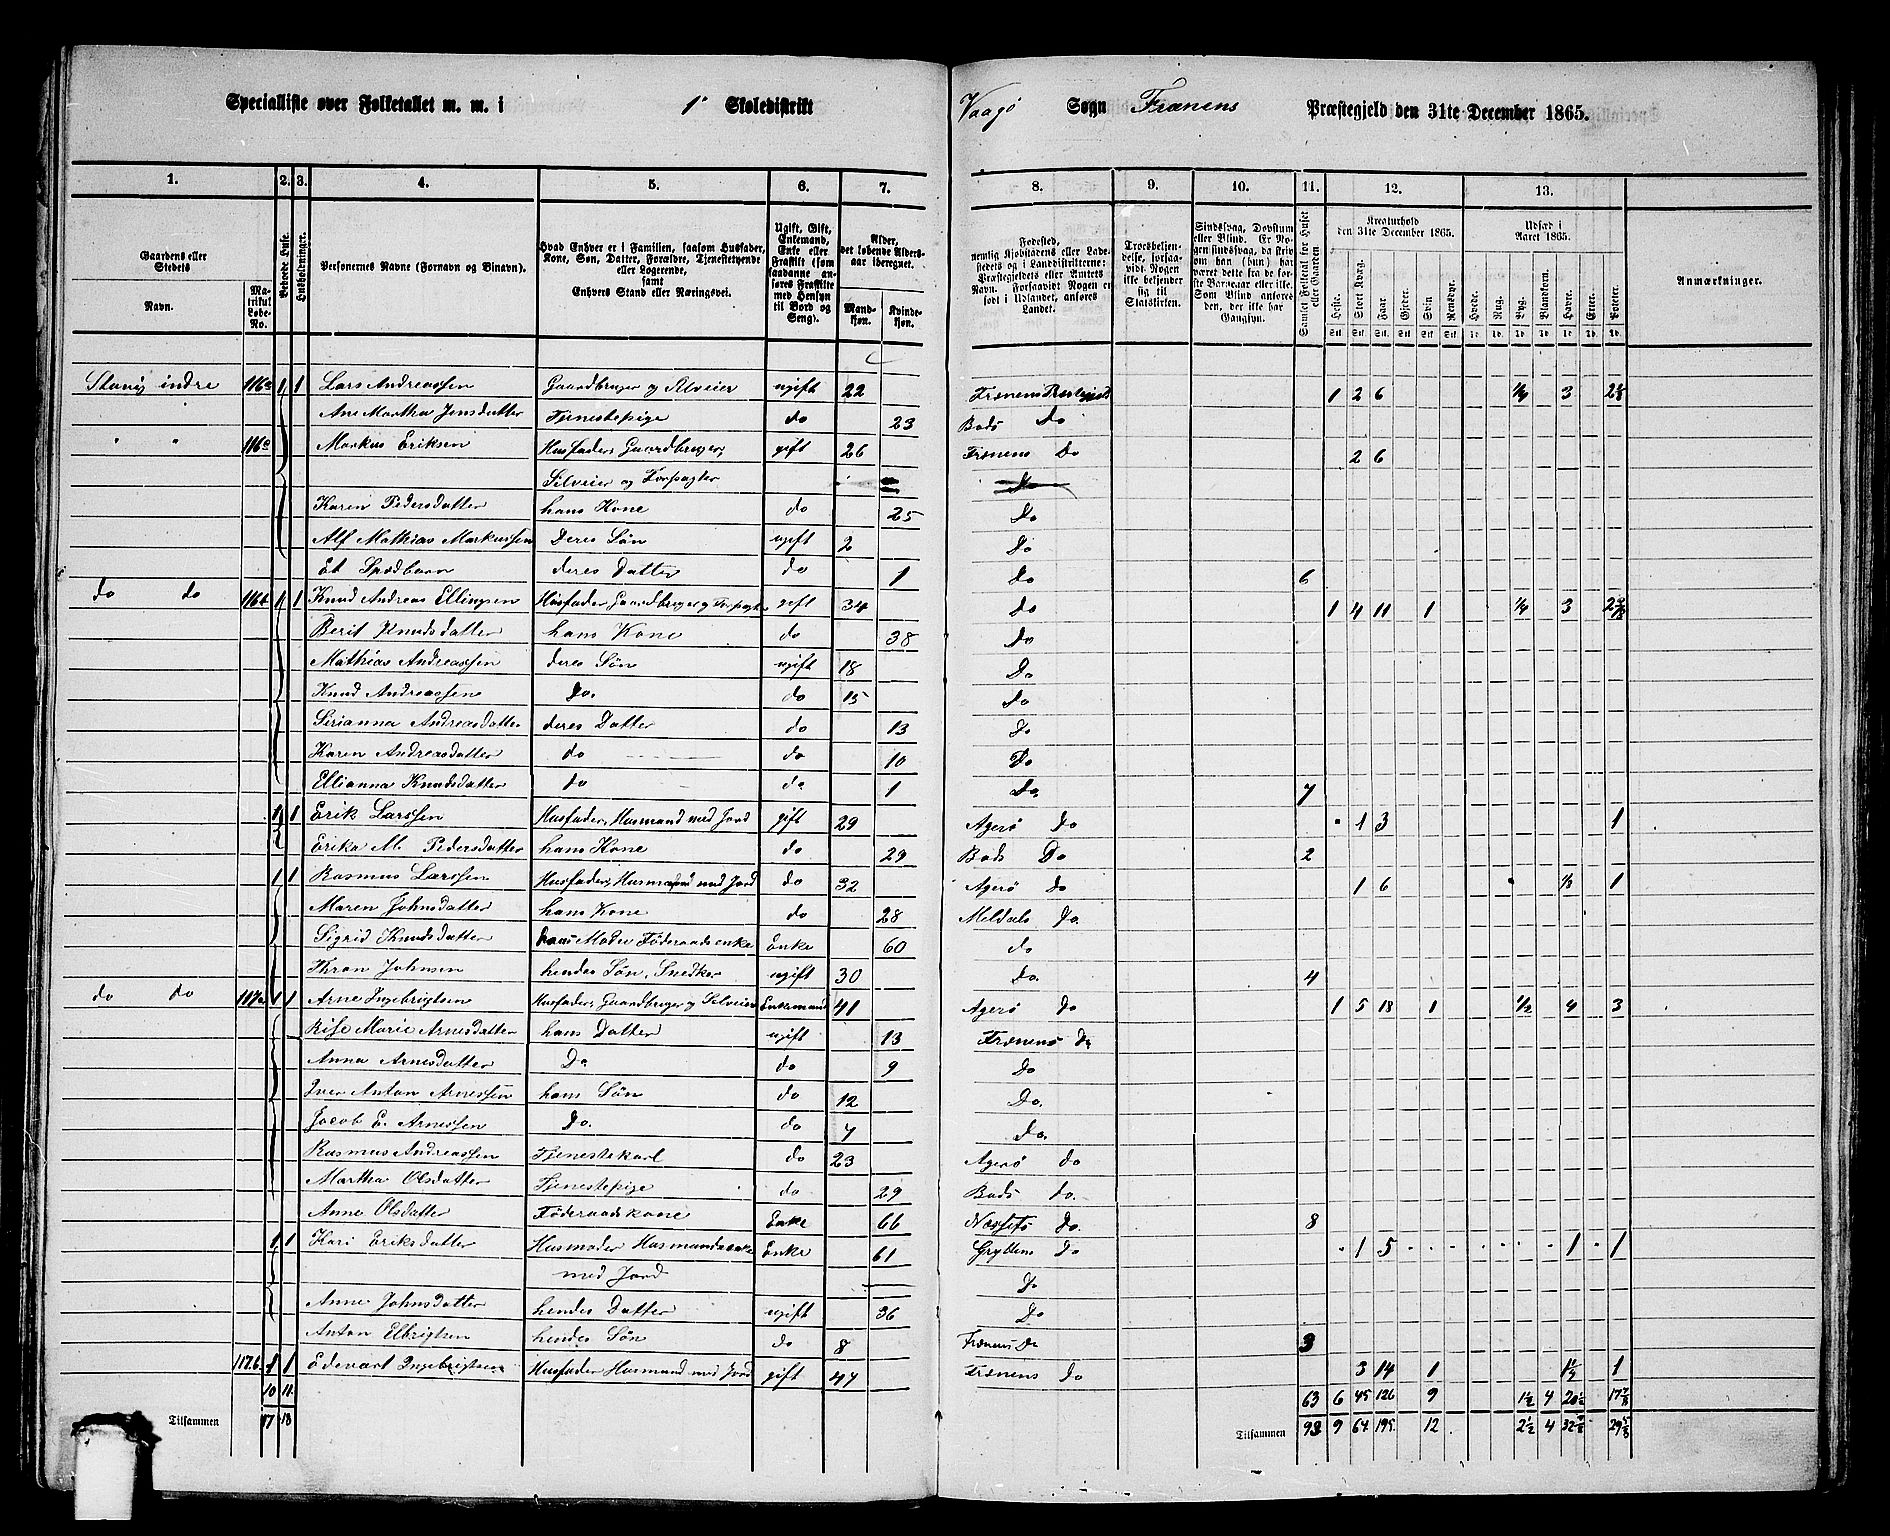 Specialliste over Folketallet m. m. i 1ˢ Skoledistrikt Vaagø Sogn Frænens Præstegjeld den 31te December 1865.
1. 2. 3. 4. 5. 6. 7. 8. 9. 10. 11. 12. 13.
Gaardens eller Stedets
Navn.
Matrikul Løbe-No.
Beboede Huse.
Husholdninger.
Personernes Navne (Fornavn og Tilnavn).
Hvad Enhver er i Familien, saasom Husfader, Kone, Søn, Datter, Forældre, Tjenestetyende eller Logerende, samt Enhvers Stand eller Næringsvei.
Ugift, Gift, Enkemand, Enke eller Fraskilt (som saadanne anføres Fraskilte med Hensyn til Bord og Seng).
Alder, det løbende Aldersaar iberegnet.
Mandkjøn.
Kvindekjøn.
Fødested, nemlig Kjøbstadens eller Ladestedets og i Landdistrikterne: Præstegjeldets eller Amtets Navn. Forsaavidt Nogen er født i Udlandet, anføres Landet.
Troesbekjendelse, forsaavidt Nogen ikke bekjender sig til Statskirken.
Sindssvag, Døvstum eller Blind.
Samlet Folketal for Huset eller Gaarden
Kreaturhold den 31te December 1865.
Heste. Stort Kvæg. Faar. Gjeder. Svin. Rensdyr.
Udsæd i Aaret 1865.
Hvede. Rug. Byg. Blandkorn. Havre. Erter. Poteter.
Anmærkninger.
indre 116a 1 1 Lars Andreassen Gaardbruger og Selveier ugift 22 Frænens Præstegjeld 1 2 6 3
Ane Martha Jensdatter Tjenestepige do 23 Bods Do
" " Markus Eriksen Husfader, Gaardbruger, gift 26 Frænens Do 2 6
Selveier og Forpagter
Karen Pedersdatter hans Kone do 25 Do
Alf Mathias Markussen Deres Søn ugift 2 Do
Et Spædbarn deres Datter do 1 Do 6
do do 1 1 Knud Andreas Ellingsen Husfader Gaardbruger og Forpagter gift 34 Do 1 4 11 1 3
Berit Knudsdatter hans Kone do 38 Do
Mathias Andreassen deres Søn ugift 18 Do
Knud Andreassen Do. do 15 Do
Serianna Andreasdatter deres Datter do 13 Do
Karen Andreasdatter do do 10 Do
Ellianna Knudsdatter do do 1 Do 7
1 1 Erik Larssen Husfader, Husmand med Jord gift 29 Agerø Do 1 3 1
Erika M. Pedersdatter hans Kone do 29 Bods Do 2
1 1 Rasmus Larssen Husfader, Husmand med Jord do 32 Agerø Do 1 6 1
Maren Johnsdatter hans Kone do 28 Meldals Do
Sigrid Knudsdatter Moder Føderaadsenke Enke 60 do
Johnsen hendes Søn, Snedker ugift 30 Do. 4
do do 117a 1 1 Arne Ingebrigtsen Husfader, Gaardbruger og Selveier Enkemand 41 Agerø Do 1 5 18 1 1/2 4 3
Marie Arnesdatter hans Datter ugift 13 Frænens Do
Anna Arnesdatter Do do 9 Do
Iver Anton Arnessen hans Søn do 12 Do.
Jacob E. Arnessen Do. do 7 Do.
Rasmus Andreassen Tjenestekarl do 23 Agerø Do
Martha Olsdatter Tjenestepige do 29 Bods Do.
Anne Olsdatter Føderaadskone Enke 66 Do. 8
1 1 Kari Eriksdatter Husmoder Husmandsenke Enke 61 Gryttens Do 1 5 1 1
med Jord Do
Anne Johnsdatter hendes Datter ugift 36 Do
Anton Elbrigtsen hendes Søn do 8 Frænens Do 3
117b 1 1 Edevart Ingebrigtsen Husfader Husmand med Jord gift 47 Frænens Do 3 14 1 1
10 11 63 6 45 126 9 1½ 4
Tilsammen 17 13 Tilsammen 93 9 64 195 12 2½ 4